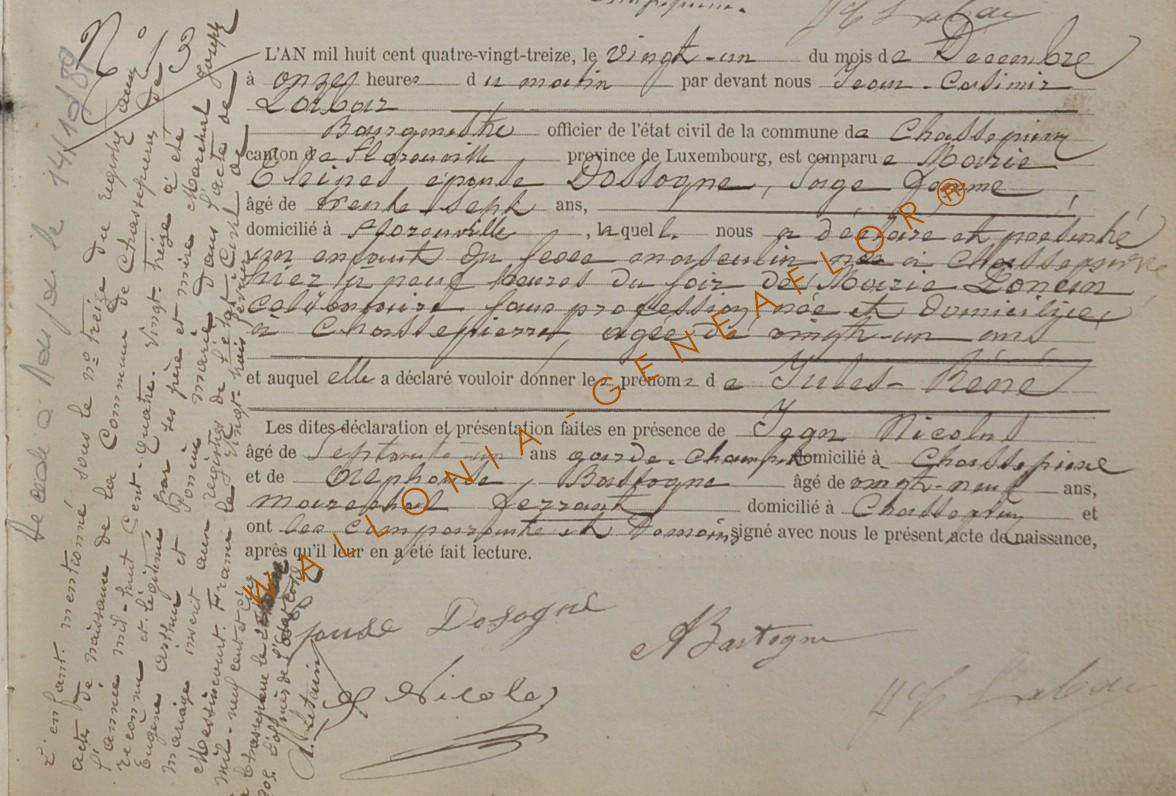 N° 13
L'AN mil huit cent quatre-vingt-treize, le vingt-un du mois de Decembre
à onze heures du matin par devant nous Jean-Casimir
Bourgmestre officier de l'état civil de la commune de Chassepierre
canton de Florenville, province de Luxembourg, est comparue Marie
épouse Dossogne, Sage femme
âgé de trente-sept ans,
domicilié à Florenville, laquelle nous a déclaré et présenté
un enfant du sexe masculin né à Chassepierre
hier à neuf heures du soir de Marie Poncin
célibataire sans profession née et domiciliée
à Chassepierre, agée de vingt-un ans
et auquel elle a déclaré vouloir donner les prénoms de Jules-René
Les dites déclaration et présentation faites en présence de Jean Nicolas
âgé de septante-un ans garde-champêtre domicilié à Chassepierre
et de Alphonse Bastogne âgé de vingt-neuf ans,
marechal ferrant domicilié à Chassepierre et
ont les comparante et temoins signé avec nous le présent acte de naissance,
après qu'il leur en a été fait lecture.
épouse Dosogne
A Bastogne
J Nicolas
L'enfant mentionné sous le n° treize du
acte de naissance de la Commune de Chassepierre de
l'année mil-huit cent-quatre-vingt-treize a été
reconnu et légitimé par ses père et mère
Eugène Arthur et Poncin Marie dans l'acte de
mariage inscrit aux registres de l'Etat-Civil de
Messincourt France le vingt-huit
mil-neuf cent et
Décédé à le 14/10/
WALLONIA-GENEAFLOR®